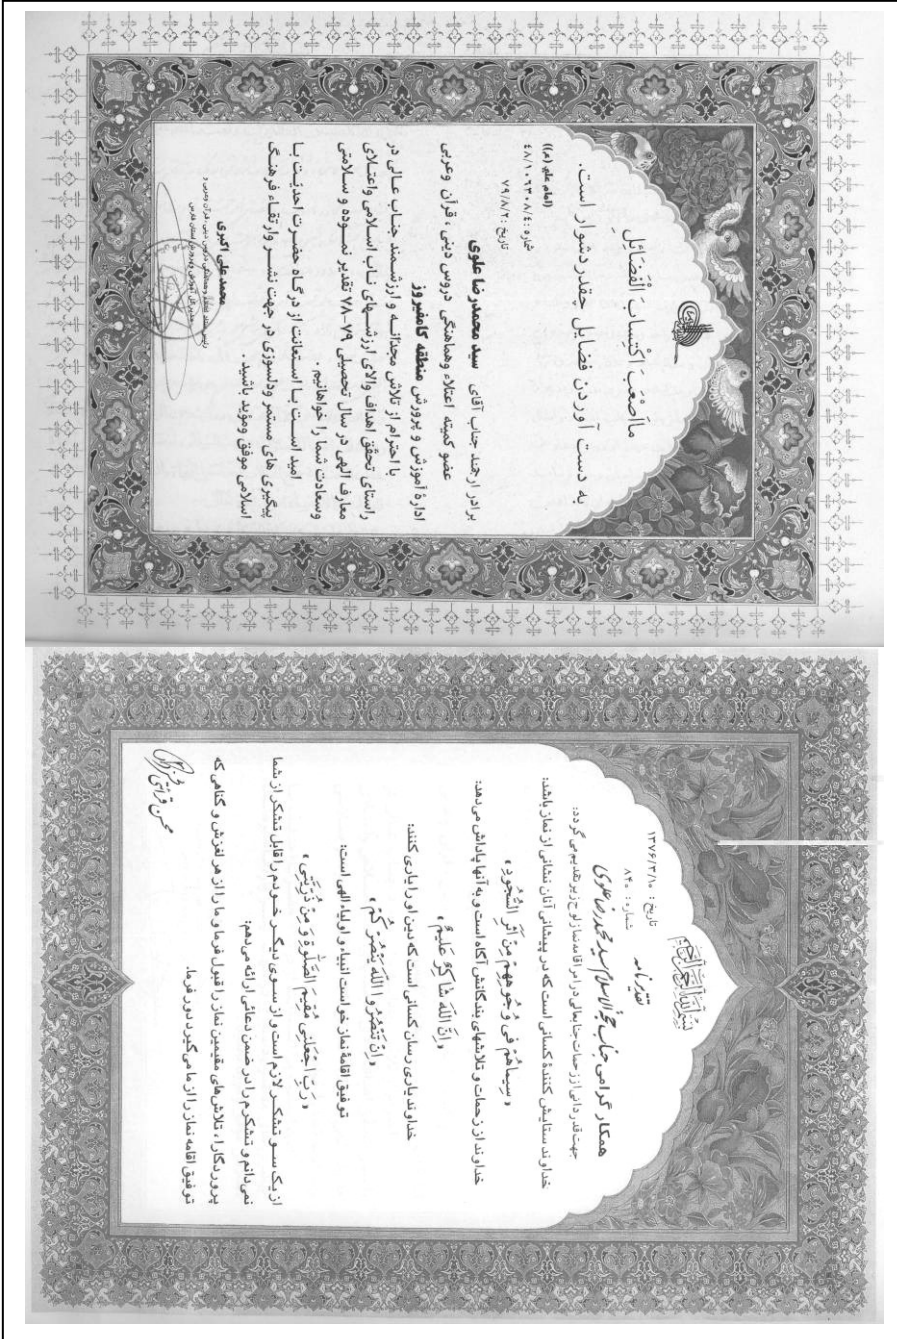 مَا اَصْعَبَ اكْتِسَابَ الْفَضَائِلِ
به دست آوردن فضایل چقدر دشوار است.
(امام علی (ع))
شماره : ۴۸/۱۰۶۳۰۸/۴
تاریخ : ۷۹/۸/۲
برادر ارجمند جناب آقای سید محمدرضا علوی
عضو کمیته اعتلاء وهماهنگی دروس دینی ، قرآن وعربی
ادارۀ آموزش و پرورش منطقه کامفیروز
با احترام از تلاش مجدّانه و ارزشمند جناب عالی در
راستای تحقّق اهداف والای ارزشهای ناب اسلامی واعتلای
معارف الهی در سال تحصیلی ۷۹-۷۸ تقدیر نموده و سلامتی
وسعادت شما را خواهانیم .
امید است با استعانت از درگاه حضرت احدیّت با
پیگیری های مستمر ودلسوزی در جهت نشر وارتقاء فرهنگ
اسلامی موفق ومؤید باشید .
محمد علی اکبری
بسم الله الرحمن الرحیم
تقدیرنامه
تاریخ : ۱۳۷۶/۳/۱۰
شماره : ۸۴۰
همکار گرامی جناب حجة الاسلام سید محمدرضا علوی
جهت قدردانی از زحمات جنابعالی در امر اقامه نماز لوح زیر تقدیم می گردد:
خداوند ستایش کنندۀ کسانی است که در پیشانی آنان نشانی از نماز باشد:
«سِیماهُمْ فی وُجُوهِهِمْ مِنْ اَثَرِ السُّجُودِ»
خداوند از زحمات و تلاشهای بندگانش آگاه است و به آنها پاداش می‌دهد:
«اِنَّ اللّهَ شاکِرٌ عَلیمٌ»
خداوند یاری رسان کسانی است که دین او را یاری کنند:
«اِنْ تَنْصُرُوا اللّهَ یَنْصُرْکُمْ»
توفیق اقامۀ نماز خواست انبیاء و اولیاء الهی است:
«رَبِّ اجْعَلْنی مُقیمَ الصَّلوةِ وَ مِنْ ذُرِّیَّتی»
از یک سو تشکر لازم است و از سوی دیگر خودم را قابل تشکر از شما
نمی‌دانم و تشکرم را در ضمن دعائی ارائه می‌دهم:
پروردگارا، تلاش‌های مقیمین نماز را قبول فرما و ما را از هر لغزش و گناهی که
توفیق اقامه نماز را از ما می‌گیرد دور فرما.
محسن قرائتی